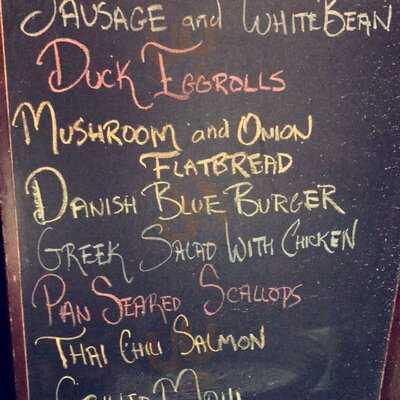 SAUSAGE and WHITE BEAN
DUCK EGGROLLS
MUSHROOM and ONION
FLATBREAD
DANISH BLUE BURGER
GREEK SALAD WITH CHICKEN
PAN SEARED SCALLOPS
THAI CHILI SALMON
GRILLED MAHI